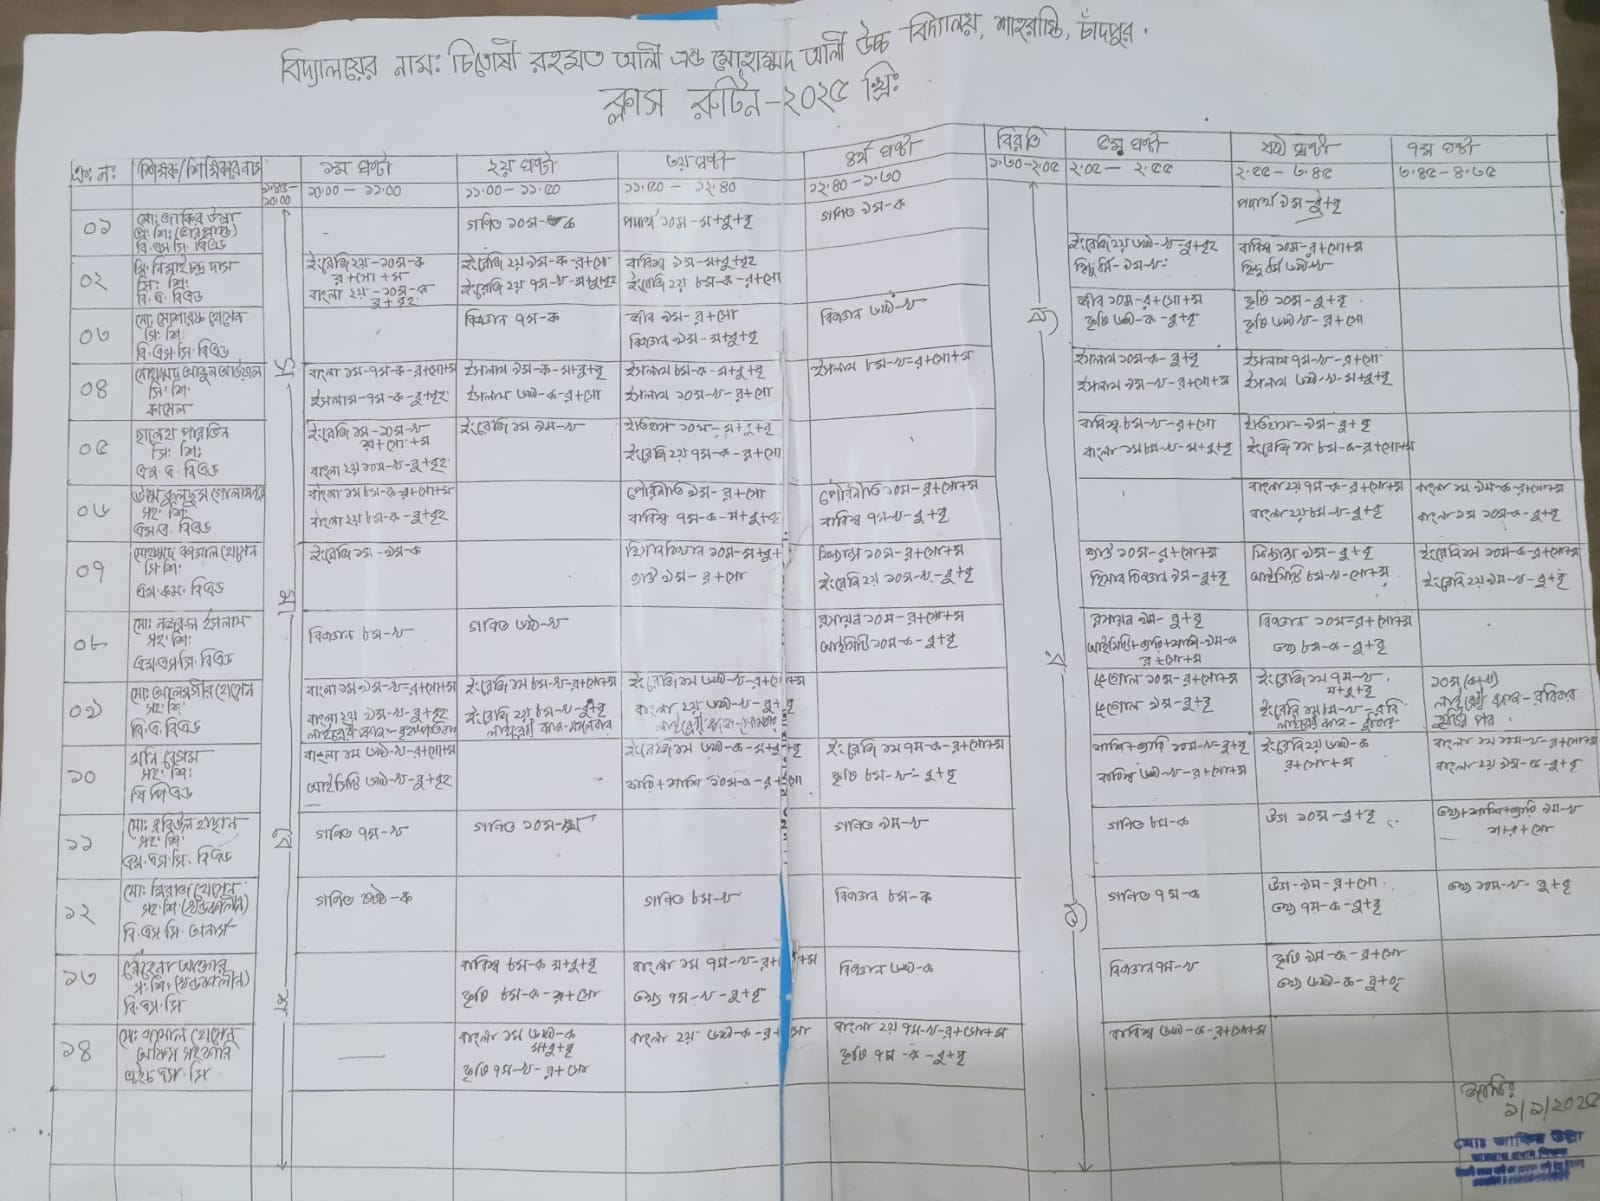 বিদ্যালয়ের নাম: চিতোষী রহমত আলী এন্ড মোহাম্মদ আলী উচ্চ বিদ্যালয়, শাহরাস্তি, চাঁদপুর।
ক্লাস রুটিন-২০২৫ খ্রিঃ
ক্রঃ নং শিক্ষক/শিক্ষিকার নাম ১ম ঘন্টা ২য় ঘন্টা ৩য় ঘন্টা ৪র্থ ঘন্টা বিরতি ৫ম ঘন্টা ৬ষ্ঠ ঘন্টা ৭ম ঘন্টা
৯:৪৫-১০:০০ ১০:০০-১১:০০ ১১:০০-১১:৫০ ১১:৫০-১২:৪০ ১২:৪০-১:৩০ ১:৩০-২:০৫ ২:০৫-২:৫৫ ২:৫৫-৩:৪৫ ৩:৪৫-৪:৩৫
০১ মোঃ জাকির উল্লা - গণিত ১০ম-ক পদার্থ ১০ম-ম+বু+বৃ গণিত ৯ম-ক পদার্থ ৯ম-বু+বৃ
বি.এস.সি. বিএড
০২ ইংরেজি ২য়-১০ম-ক ইংরেজি ২য় ৯ম-ক-র+সো বাবিশ্ব ৯ম-ম+বু+বৃহ ইংরেজি ২য় ৬ষ্ঠ-খ-বু+বৃহ বাবিশ্ব ১০ম-র+সো+ম
সি: শি: র+সো+ম
বি.এ. বিএড বাংলা ২য়-১০ম-ক ইংরেজি ২য় ৭ম-খ-ম+বু+বৃহ ইংরেজি ২য় ৮ম-ক-র+সো হিন্দু ধর্ম-৯ম-খ হিন্দু ধর্ম ৬ষ্ঠ-খ
বু+বৃহ
০৩ মোঃ মোশারফ হোসেন বিজ্ঞান ৭ম-ক জীব ৯ম-র+সো বিজ্ঞান ৬ষ্ঠ-খ জীব ১০ম-র+সো+ম কৃষি ১০ম-বু+বৃ
সি: শি: বিজ্ঞান ৯ম-ম+বু+বৃ কৃষি ৬ষ্ঠ-ক-বু+বৃ কৃষি ৬ষ্ঠ-খ-র+সো
বি.এস.সি. বিএড
০৪ বাংলা ১ম-৭ম-ক-র+সো+ম ইসলাম ৯ম-ক-ম+বু+বৃ ইসলাম ৮ম-ক-ম+বু+বৃ ইসলাম ৮ম-খ-র+সো+ম ইসলাম ১০ম-ক-বু+বৃ ইসলাম ৭ম-খ-র+সো
সি: শি: ইসলাম-৭ম-ক-বু+বৃহ ইসলাম ৬ষ্ঠ-ক-র+সো ইসলাম ১০ম-খ-র+সো ইসলাম ৯ম-খ-র+সো+ম ইসলাম ৬ষ্ঠ-খ-ম+বু+বৃ
কামেল
০৫ ছালেহা পারভিন ইংরেজি ১ম-১০ম-খ ইংরেজি ১ম ৯ম-খ ইতিহাস ১০ম-ম+বু+বৃ বাবিশ্ব ৮ম-খ-র+সো ইতিহাস ৯ম-বু+বৃ
সি: শি: র+সো+ম ইংরেজি ২য় ৭ম-ক-র+সো বাংলা ১ম ৮ম-খ-ম+বু+বৃ ইংরেজি ১ম ৮ম-ক-র+সো+ম
এম.এ. বিএড বাংলা ২য় ১০ম-খ-বু+বৃহ
০৬ বাংলা ১ম ৮ম-ক-র+সো+ম পৌরনীতি ৯ম-র+সো পৌরনীতি ১০ম-র+সো+ম বাংলা ২য় ৭ম-ক-র+সো+ম বাংলা ১ম ৯ম-ক-র+সো+ম
সহ: শি: বাংলা ২য় ৮ম-ক-বু+বৃহ বাবিশ্ব ৭ম-ক-ম+বু+বৃ বাবিশ্ব ৭ম-খ-বু+বৃ বাংলা ২য় ৮ম-খ-বু+বৃ বাংলা ১ম ১০ম-ক-বু+বৃ
এম.এ. বিএড
০৭ মোহাম্মদ কামাল হোসেন ইংরেজি ১ম-৯ম-ক হিসাব বিজ্ঞান ১০ম-ম+বু+ ফিন্যান্স ১০ম-র+সো+ম ফিন্যান্স ৯ম-বু+বৃ ইংরেজি ১ম ১০ম-ক-র+সো+ম
সি: শি: ইংরেজি ২য় ১০ম-খ-বু+বৃ হিসাব বিজ্ঞান ৯ম-বু+বৃ আইসিটি ৮ম-খ-সো+ম ইংরেজি ২য় ৯ম-খ-বু+বৃ
এম.কম. বিএড
০৮ মোঃ নজরুল ইসলাম বিজ্ঞান ৮ম-খ গণিত ৬ষ্ঠ-খ রসায়ন ১০ম-র+সো+ম রসায়ন ৯ম-বু+বৃ বিজ্ঞান ১০ম-র+সো+ম
সহ: শি: আইসিটি ১০ম-ক-বু+বৃ তথ্য ৮ম-ক-বু+বৃ
এম.এস.সি. বিএড র+সো+ম
০৯ মোঃ আলমগীর হোসেন বাংলা ১ম ৯ম-খ-র+সো+ম ইংরেজি ১ম ৮ম-খ-র+সো+ম ইংরেজি ১ম ৬ষ্ঠ-খ-র+সো+ম ভূগোল ১০ম-র+সো+ম ইংরেজি ১ম ৭ম-খ ১০ম (ক+খ)
সহ: শি: বাংলা ২য় ৯ম-খ-বু+বৃহ ইংরেজি ২য় ৮ম-খ-বু+বৃ বাংলা ২য় ৬ষ্ঠ-খ-বু+বৃ ভূগোল ৯ম-বু+বৃ ম+বু+বৃ
বি.এ. বিএড
১০ মনি বেগম বাংলা ১ম ৬ষ্ঠ-খ-র+সো+ম ইংরেজি ১ম ৬ষ্ঠ-ক-ম+বু+বৃ ইংরেজি ১ম ৭ম-ক-র+সো+ম ইংরেজি ২য় ৬ষ্ঠ-ক বাংলা ১ম ১০ম-খ-র+সো+ম
সহ: শি: আইসিটি ৬ষ্ঠ-খ-বু+বৃহ কৃষি ৮ম-খ-বু+বৃ বাবিশ্ব ৬ষ্ঠ-খ-র+সো+ম র+সো+ম বাংলা ২য় ৯ম-ক-বু+বৃ
বিপিএড
১১ মোঃ রবিউল হাছান গণিত ৭ম-খ গণিত ১০ম-খ গণিত ৯ম-খ গণিত ৮ম-ক উচ্চ ১০ম-বু+বৃ
সহ: শি: ম+র+সো
এম.এস.সি. বিএড
১২ মোঃ মিরাজ হোসেন গণিত ৬ষ্ঠ-ক গণিত ৮ম-খ বিজ্ঞান ৮ম-ক গণিত ৭ম-ক উচ্চ-৯ম-র+সো তথ্য ১০ম-খ-বু+বৃ
সহ: শি: (খন্ডকালীন) তথ্য ৭ম-ক-বু+বৃ
বি.এস.সি. অনার্স
১৩ রেহেনা আক্তার বাবিশ্ব ৮ম-ক ম+বু+বৃ বাংলা ১ম ৭ম-খ-র+সো+ম বিজ্ঞান ৬ষ্ঠ-ক বিজ্ঞান ৭ম-খ কৃষি ৯ম-ক-র+সো
স: শি: (খন্ডকালীন) কৃষি ৮ম-ক-র+সো তথ্য ৭ম-খ-বু+বৃ তথ্য ৬ষ্ঠ-ক-বু+বৃ
বি.এস.সি
১৪ মোঃ কামাল হোসেন বাংলা ১ম ৬ষ্ঠ-ক বাংলা ২য় ৬ষ্ঠ-ক-র+সো বাংলা ২য় ৭ম-খ-র+সো+ম বাবিশ্ব ৬ষ্ঠ-ক-র+সো+ম
অফিস সহকারি ম+বু+বৃ কৃষি ৭ম-ক-বু+বৃ
এইচ.এস.সি. কৃষি ৭ম-খ-র+সো
স
মা
বে
শ
বি
র
তি
জাকির
১/১/২০২৫
মোঃ জাকির উল্লা